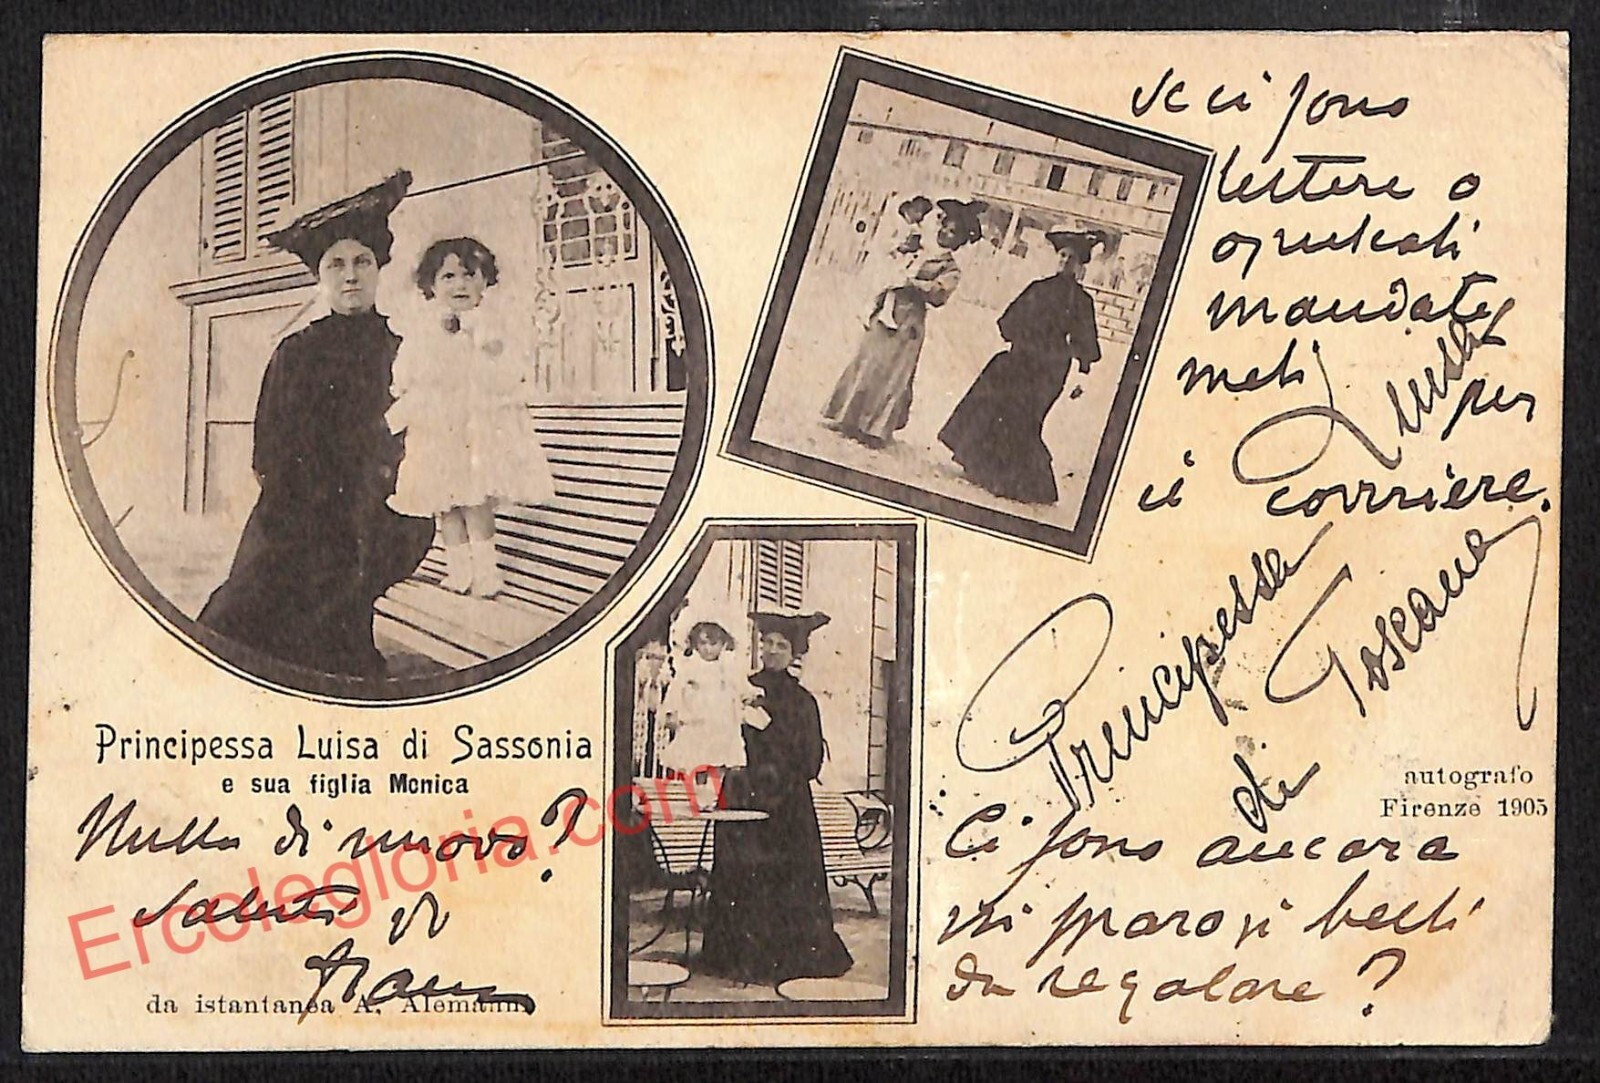 se ci sono
lettere o
mandate
meli
per
corriere.
Luisa
Principessa
di
Toscana
autografo
Firenze 1905
Principessa Luisa di Sassonia
e sua figlia Monica
Nulla di nuovo?
Saluti
da istantanea A. Alemanni
Ci sono ancora
belli
da regalare?
Ercolegloria.com